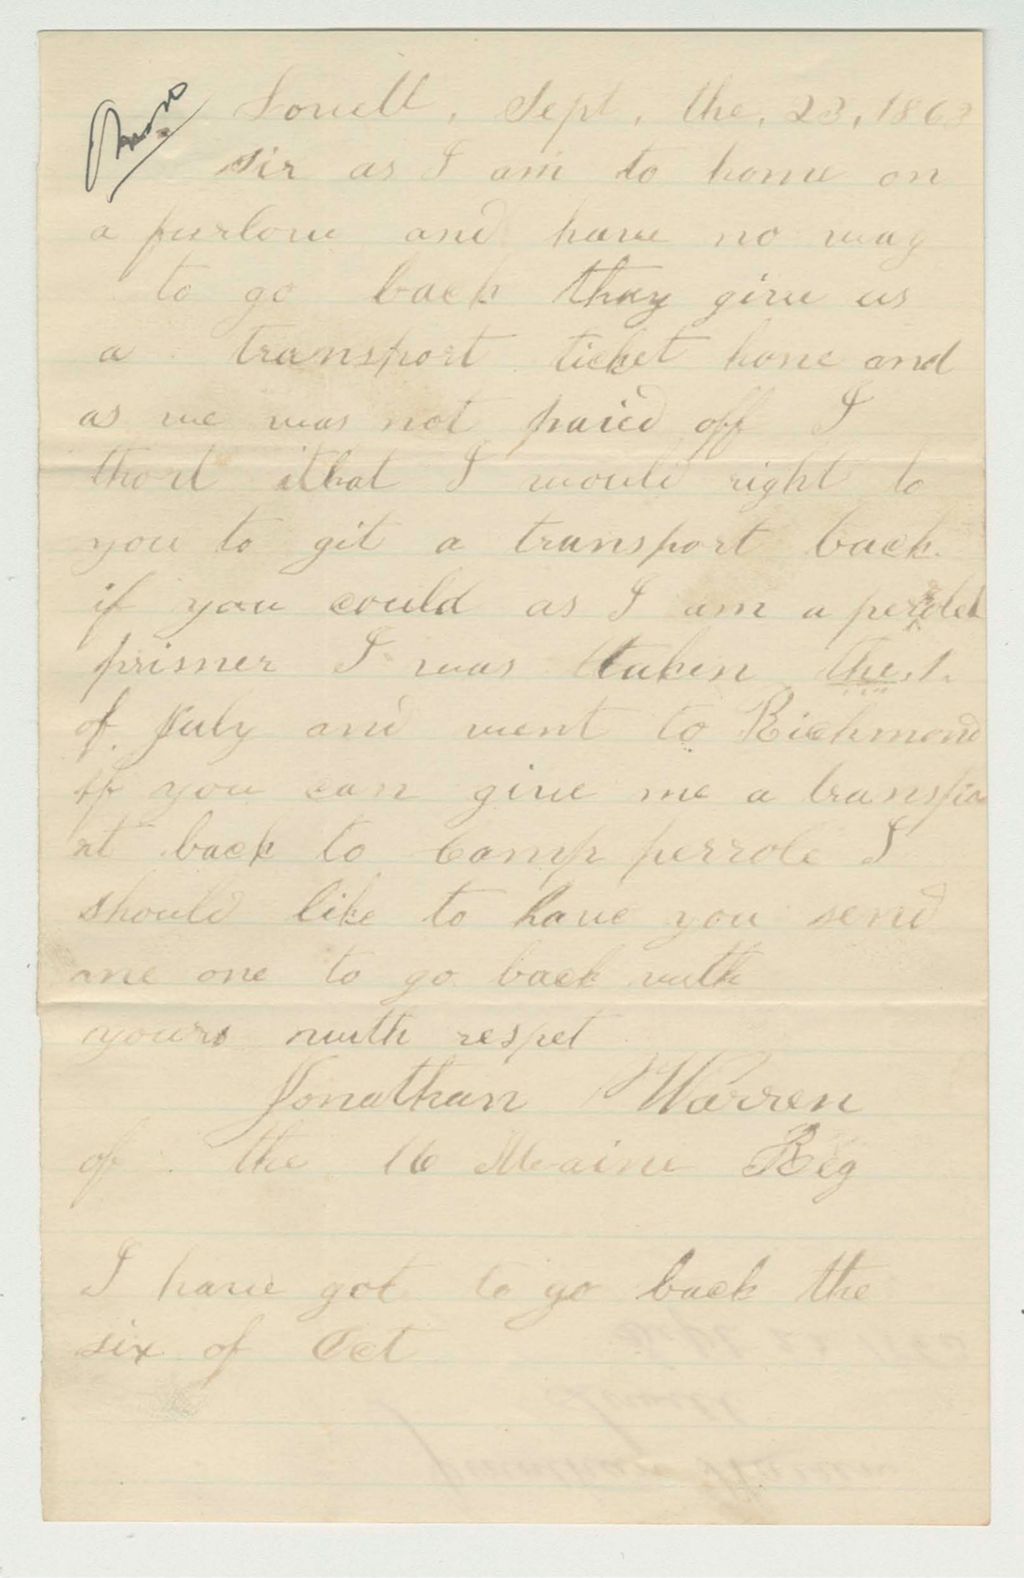 Lowell, Sept, the, 23, 1863
sir as I am to home on
a furlow and have no way
to go back thay give us
a transport ticket home and
as we was not paied off I
thort that I would right to
you to git a transport back
if you could as I am a peroled
prisner I was taken the 1.
of July and went to Richmond
if you can give me a transpo
rt back to Camp perrole I
should like to have you send
me one to go back with
yours with respet
Jonathan Warren
of the 16 Maine Reg
I have got to go back the
six of Oct